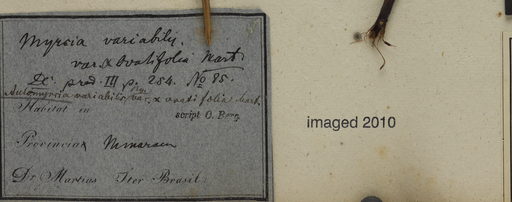 Myrcia variabilis.
var. α ovatifolia Mart.
DC. prod. III p. 254. No 85.
Aulomyrcia variabilis var. α ovatifolia Mart.
script O. Berg
Habitat in
Provincia
Dr. Martius Iter Brasil.
imaged 2010